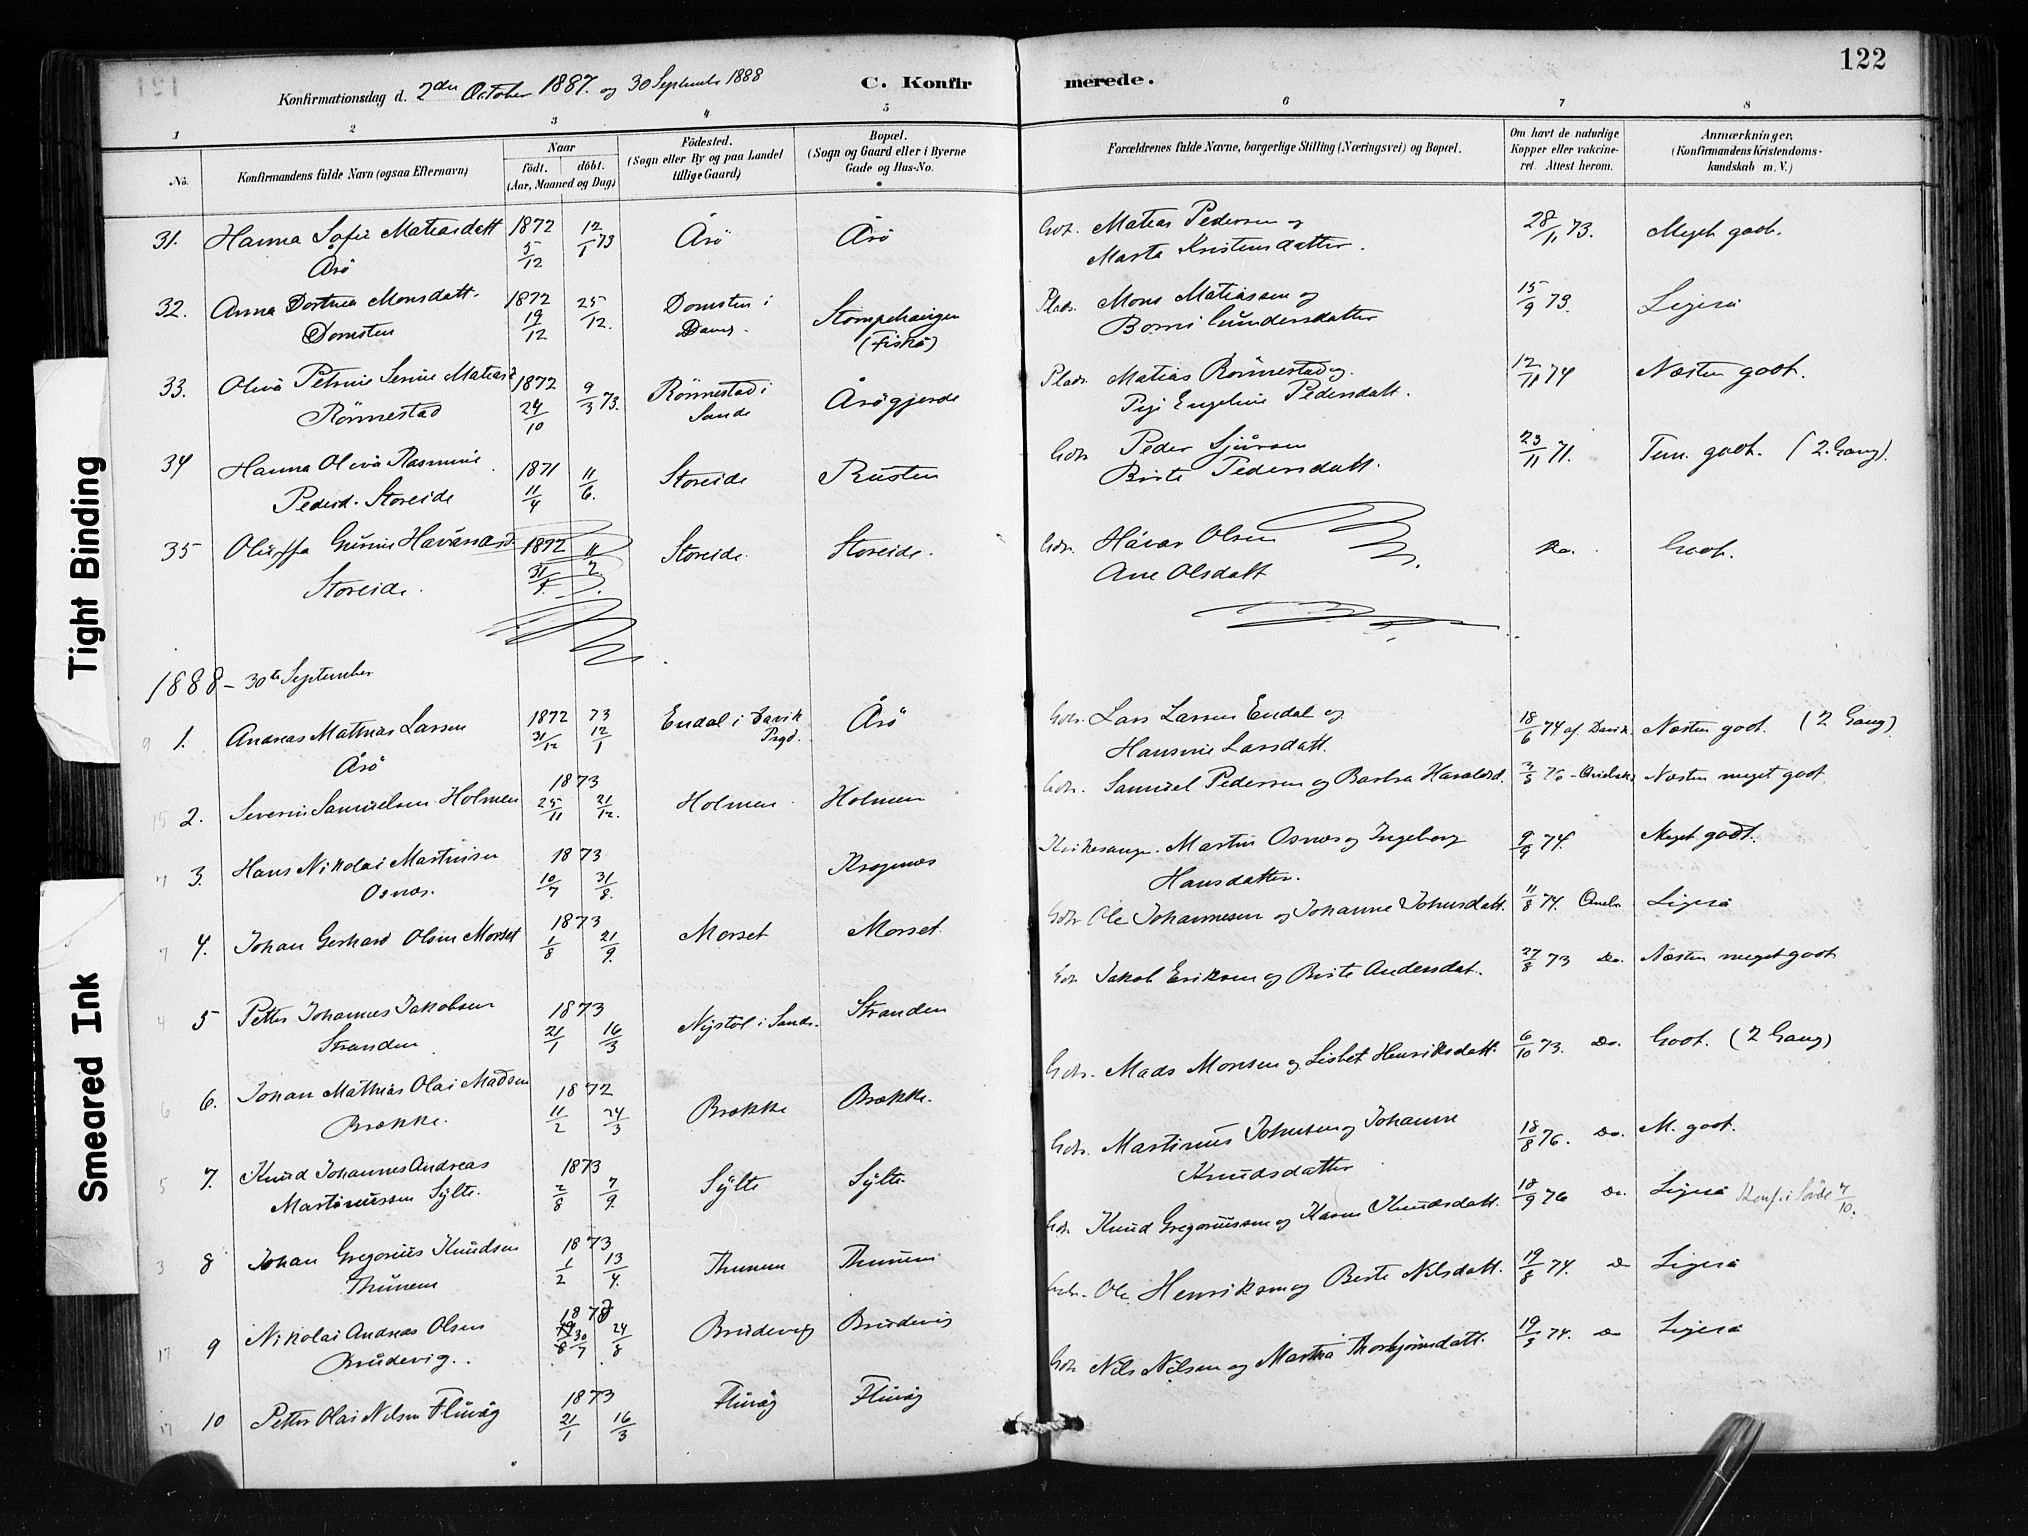 122
Konfirmationsdag d. 2den October 1887. og 30 September 1888
C. Konfirmerede.
1 2 3 4 5 6 7 8
No.
Konfirmandens fulde Navn (ogsaa Efternavn)
Naar
Födt. döbt.
(Aar, Maaned og Dag)
Födested.
(Sogn eller By og paa Landet
tillige Gaard)
Bopæl.
(Sogn og Gaard eller i Byerne
Gade og Hus-No.
Forældrenes fulde Navne, borgerlige Stilling (Næringsvei) og Bopæl.
Om havt de naturlige
Kopper eller vakcine-
ret. Attest herom.
Anmærkninger.
(Konfirmandens Kristendoms-
kundskab m. V.)
31. Hanna Sofie Matiasdatt 1872 12/1 73 Årö Årö Gbr. Matias Pedersen og 28/11 73. Meget godt.
Årö 5/12 Marta Kristensdatter.
32. Anna Dortea Monsdatt. 1872 25/12. Domsten i Stompehaugen Pladr. Mons Matiassen og 15/9 73. Ligeså
Domsten 19/12 Davig. (Fiskå) Borni Gundersdatter
33. Oliva Petrine Serine Matiasd 1872 9/3 73. Rönnestad i Årögjerde Pladr. Matias Rönnestad og 12/11 74 Næsten godt.
Rönnestad 24/10 Sande Engeline Pedersdatt.
34 Hanna Oliva Rasmine 1871 11/6. Storeide Rusten Gbr Peder Sjursen 23/11 71. Tem. godt. (2. Gang).
Pedersd. Storeide 11/4 Brite Pedersdatt.
35 Gurine Havarsd. 1872 11/2 Storeide. Storeide. Gbr. Håvar Olsen Godt.
Storeide. 31/1. Ane Olsdatt
1888 - 30te September
1. Andreas Mathias Larsen 1872 73 Endal i Davik Årö Gbr. Lars Larsen Endal og 18/6 74 af Davik. Næsten godt. (2 Gang)
Årö 31/12 12/1 Prgd. Hansine Larsdatt.
2. Severin Samuelsen Holmen 1873 25/11 21/12. Holmen Holmen Gbr. Samuel Pedersen og Barbra Haraldsd. Næsten meget godt.
3. Hans Nikolai Martinsen 1873 Krogenæs Kirkesanger. Martin Osnæs og Ingeborg 9/9 74. Meget godt.
Osnæs. 10/7 31/8. Hansdatter.
4. Johan Gerhard Olsen Morset 1873 1/8 21/9. Morset Morset Gbr Ole Johannesen og Johanne Johnsdatt. 11/8 74. Ligeså
5 Petter Johannes Jakobsen 1873 Nystöl i Sande. Stranden Gbr Jakob Eriksen og Brite Andersdat. 27/8 73 Do. Næsten meget godt
Stranden 21/1 16/3
6. Johan Mathias Olai Madsen 1872 Brække Brække. Gbr. Mads Monsen og Lisbet Henriksdatt. 6/10 73. Do. Godt. (2 Gang)
Brække. 11/2 24/3
7. Knud Johannes Andreas 1873 Sylte Sylte Gbr. Martinus Johnsen og Johanne 18/8 76. Do. M. godt.
Martinussen Sylte. 2/8 7/9. Knudsdatter
8 Johan Gregorius Knudsen 1873 Thunem Thunem Gbr. Knud Gregoriussen og Karen Knudsdatt. 18/9 76 Do. Ligeså
Thunem 1/2 13/4.
9 Nikolai Andreas Olsen 1873 Brudevig Brudevig Gbr. Ole Henriksen og Berte Nilsdatt. 19/8 74. Do Ligeså
Brudevig. 30/7 24/8
10 Petter Olai Nilsen Fluvåg 1873 21/1 16/3 Fluvåg Fluvåg Gbr Nils Nilsen og Martha Thorbjörnsdatt. 19/3 74. Do Ligeså
Tight Binding
Smeared Ink